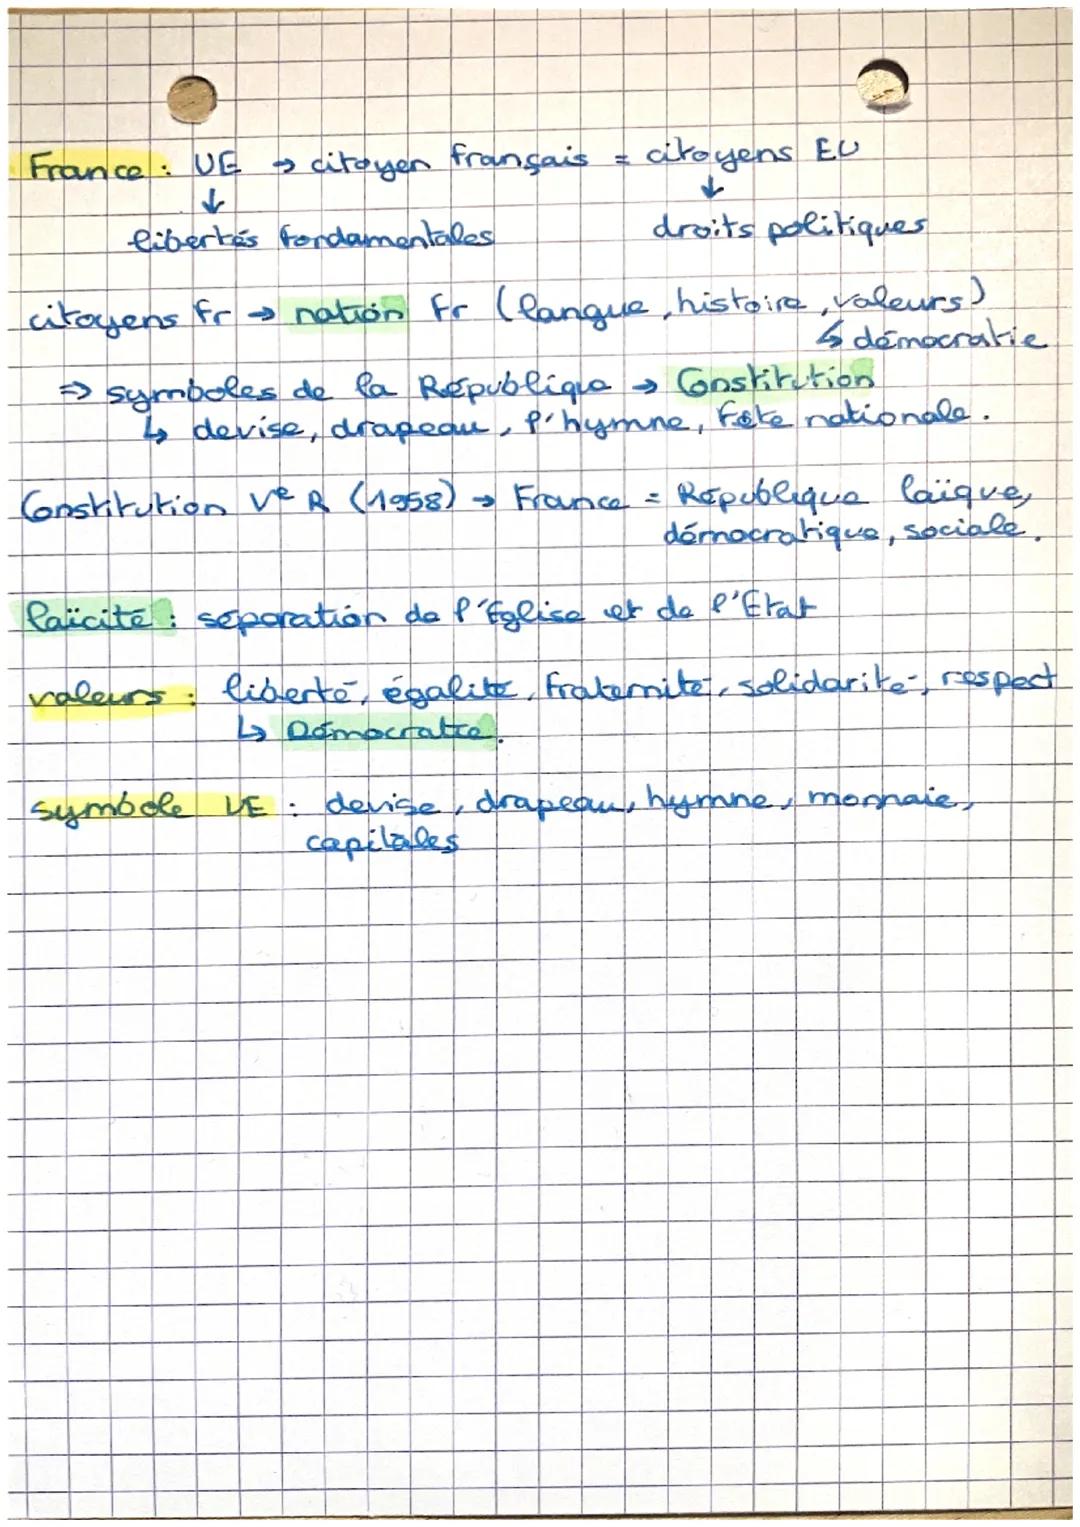 France : UE → citoyen français = citoyens EU
↓ ↓
libertés fondamentales droits politiques
citoyens fr → nation fr (langue, histoire, valeurs)
↳ démocratie
⇒ symboles de la République → Constitution
↳ devise, drapeau, l'hymne, fête nationale.
Constitution Ve R (1958) → France = République laïque,
démocratique, sociale.
laïcité : séparation de l'Église et de l'Etat
valeurs : liberté, égalité, fraternité, solidarité, respect
↳ Démocratie.
symbole UE : devise, drapeau, hymne, monnaie,
capitales